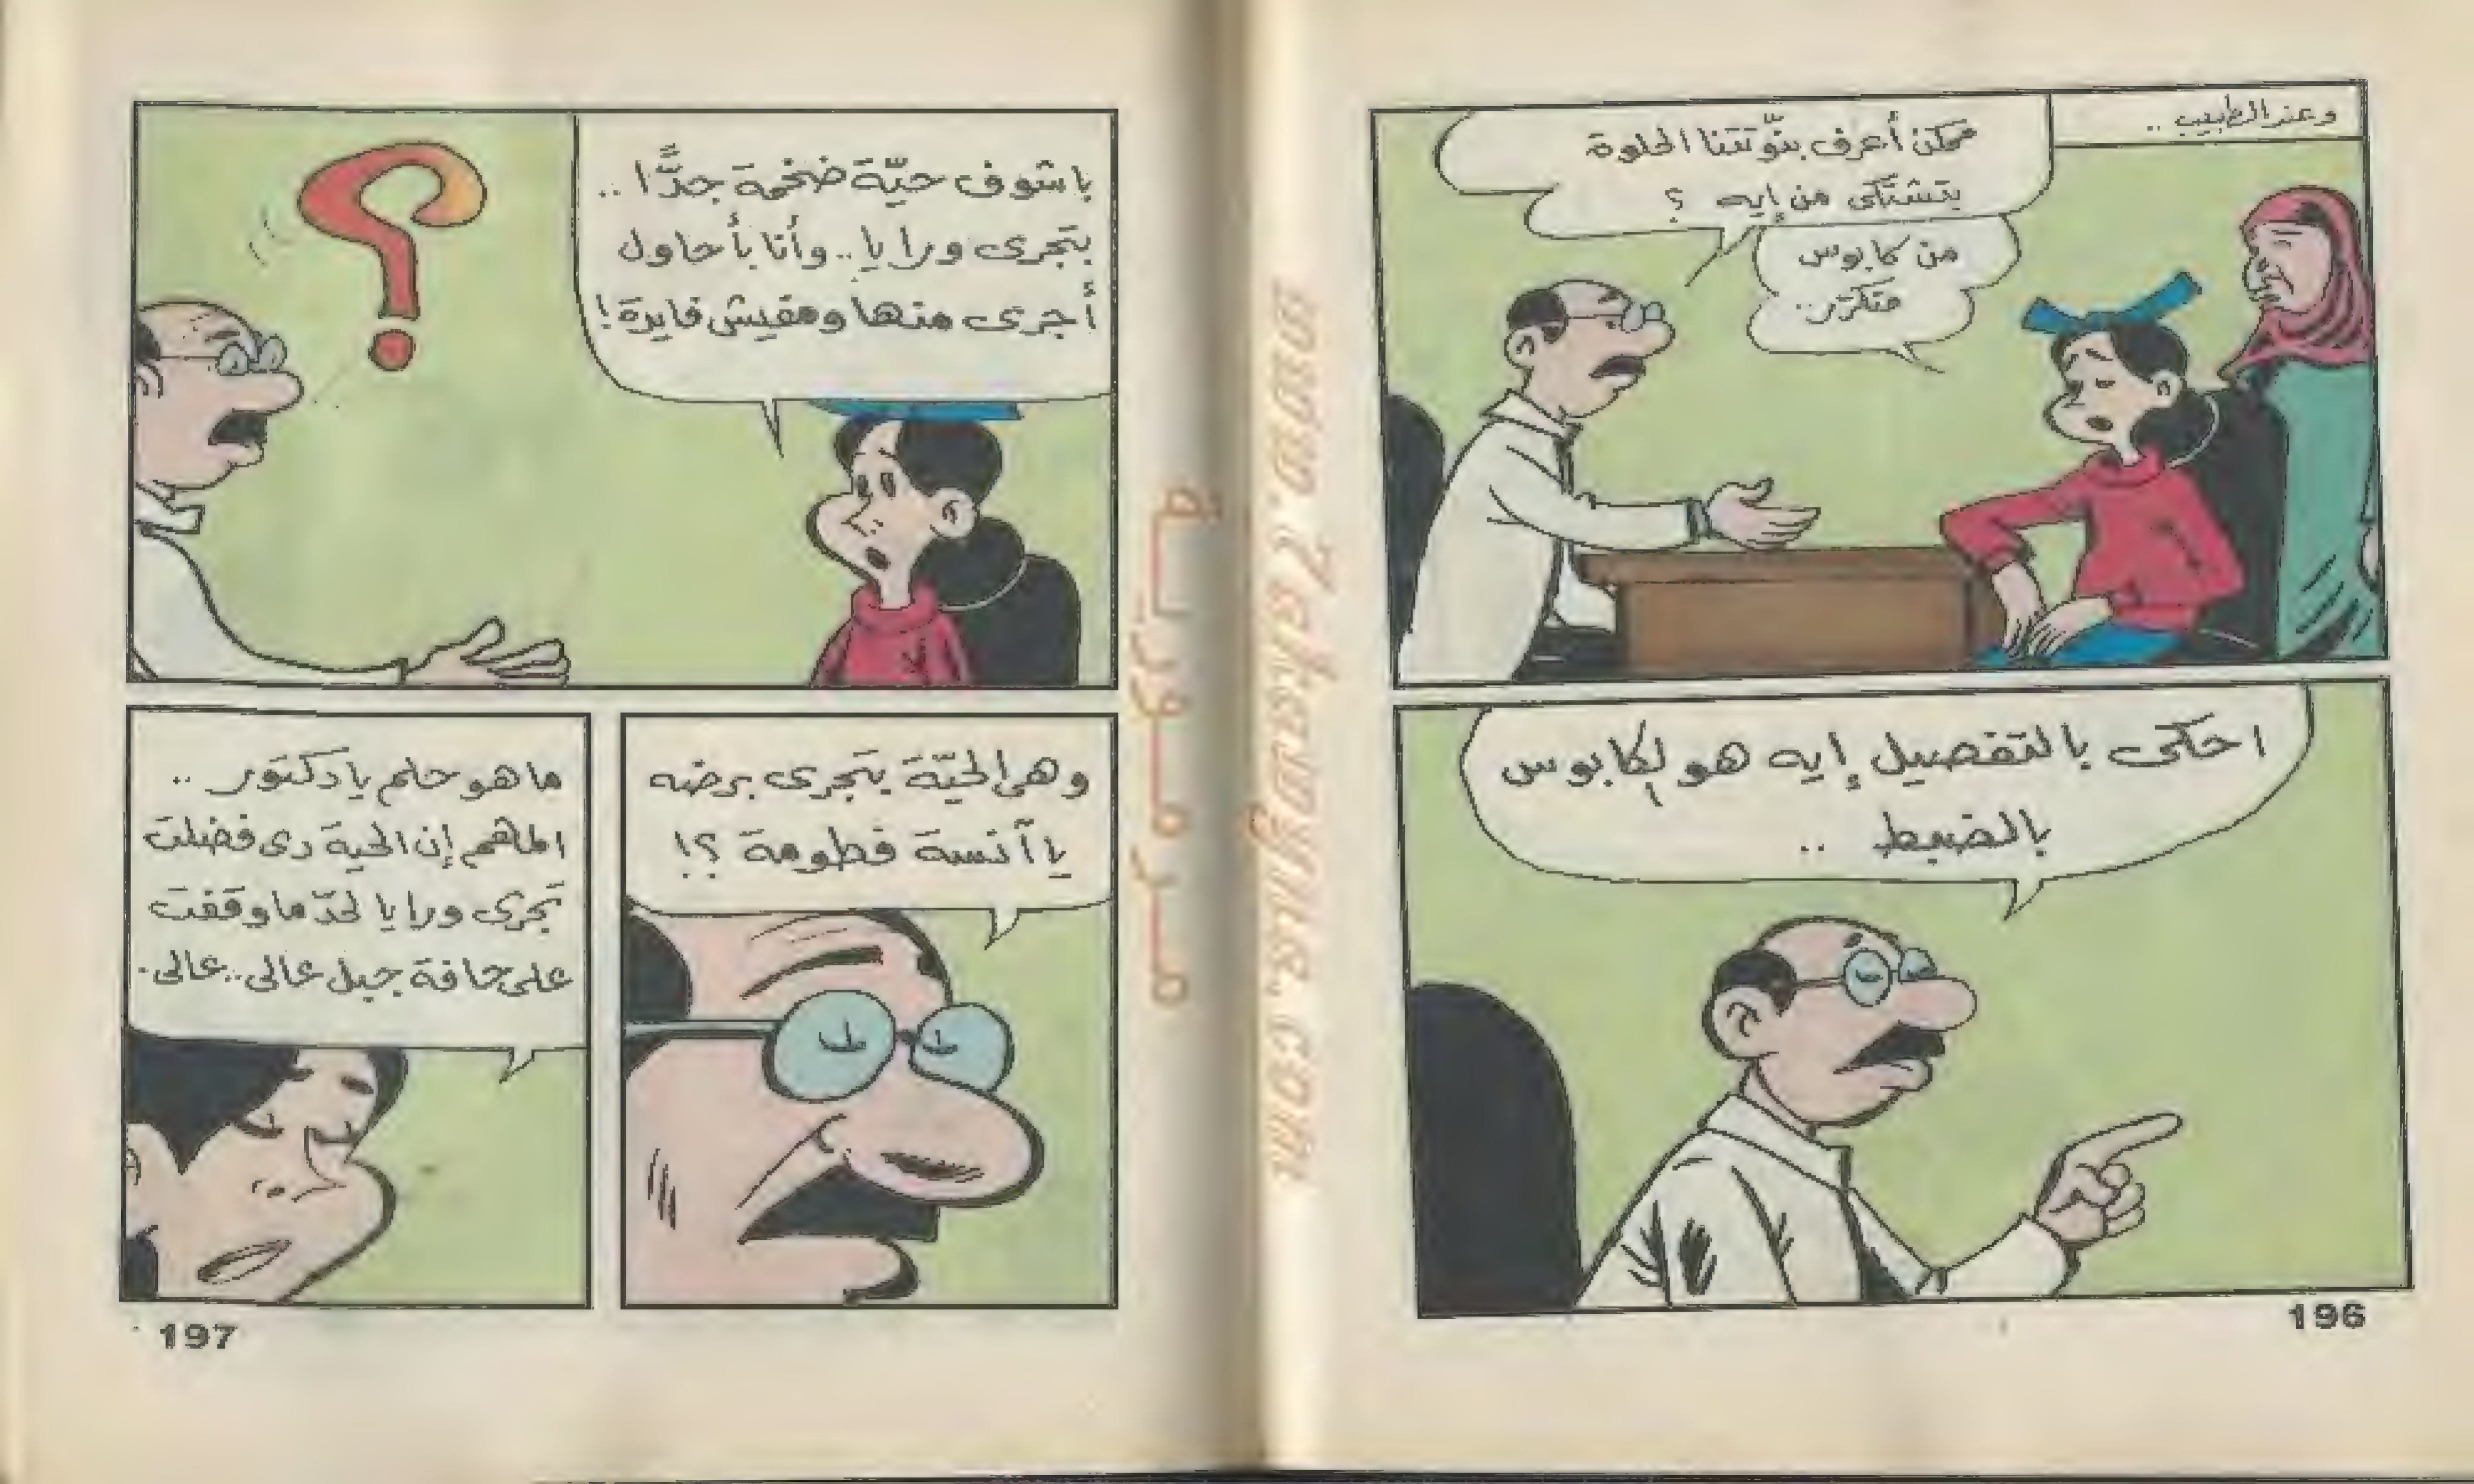 وعند الطبيب ..
ممكن أعرف بنّوتتنا الحلوة
بتشتكى من إيه ؟
من كابوس
متكرّر..
احكى بالتفصيل إيه هو الكابوس
بالضبط ..
196
باشوف حيّة ضخمة جدًّا ..
بتجرى ورايا.. وأنا بأحاول
أجرى منها ومفيش فايدة!
وهى الحيّة بتجرى برضه
يا آنسة فطومة ؟!
ما هو حلم يا دكتور ..
المهم إن الحية دى فضلت
تجرى ورايا لحدّ ما وقفت
على حافة جبل عالى.. عالى.
197